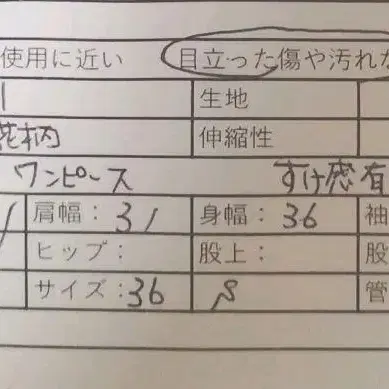 使用に近い 目立った傷や汚れな
生地
花柄 伸縮性
ワンピース すけ感有
肩幅：31 身幅：36 袖
ヒップ： 股上： 股
サイズ：36 S 管